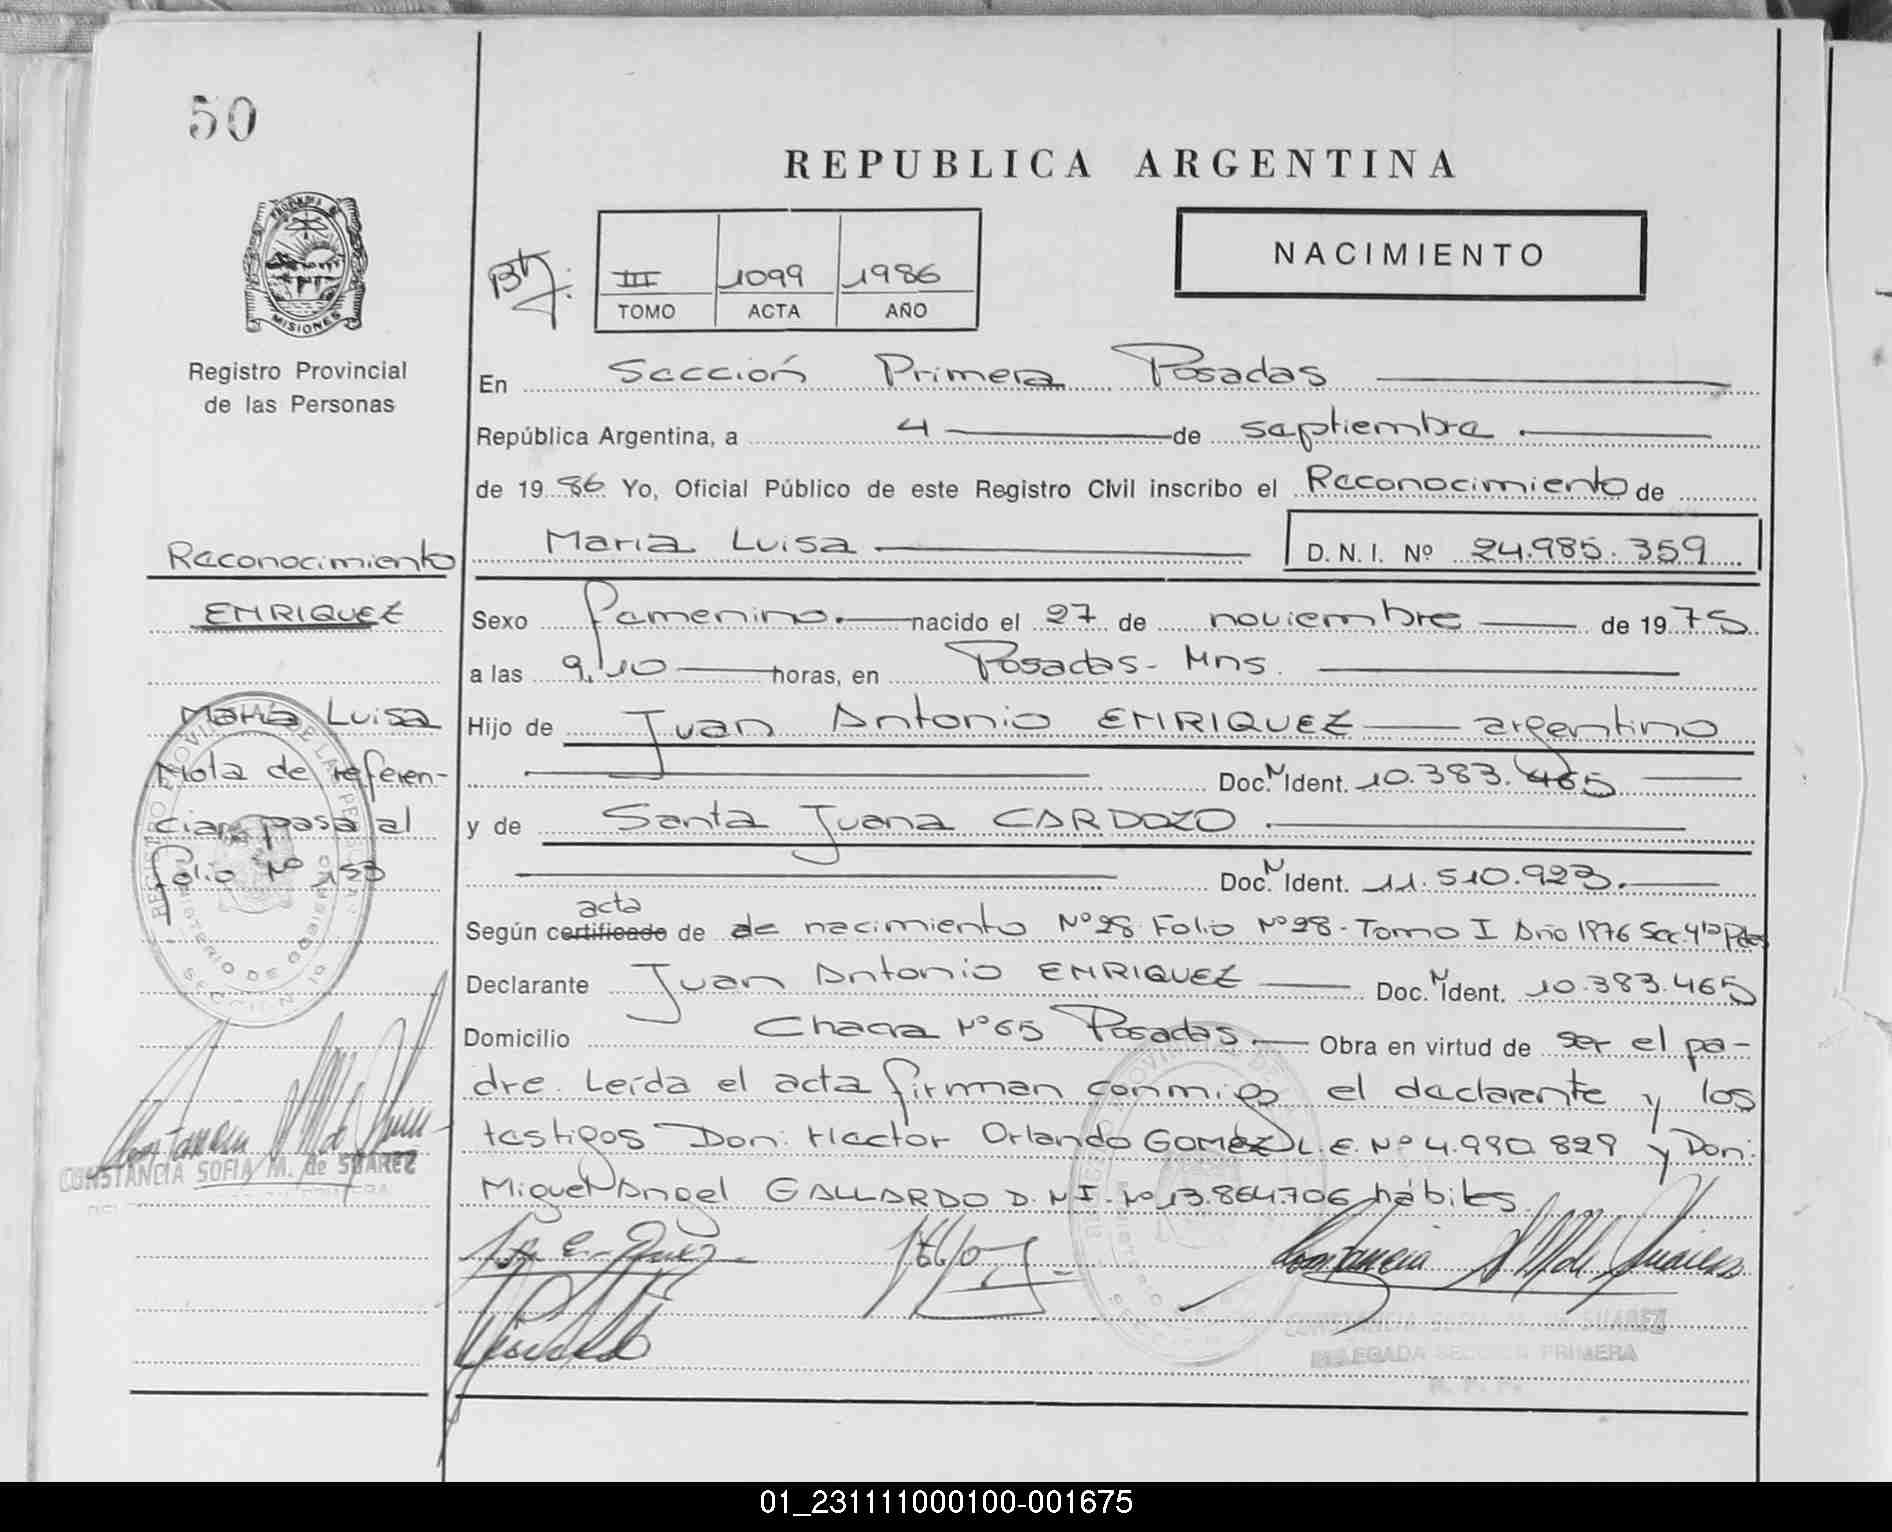 50
REPUBLICA ARGENTINA
PROVINCIA DE
MISIONES
Registro Provincial
de las Personas
III 1099 1986
TOMO ACTA AÑO
NACIMIENTO
En Sección Primera Posadas
República Argentina, a 4 de septiembre
de 1986 Yo, Oficial Público de este Registro Civil inscribo el Reconocimiento de
Maria Luisa D.N.I. Nº 24.985.359
Sexo femenino. nacido el 27 de noviembre de 1975
a las 9,10 horas, en Posadas- Mns.
Hijo de Juan Antonio ENRIQUEZ argentino
Doc. N Ident. 10.383.465
y de Santa Juana CARDOZO
Doc. N Ident. 11.510.923.
acta
Según certificado de de nacimiento Nº28 Folio Nº28- Tomo I Año 1976 Sec. 4ta Pdas
Declarante Juan Antonio ENRIQUEZ Doc. N Ident. 10.383.465
Domicilio Chacra Nº65 Posadas. Obra en virtud de ser el pa-
dre. Leída el acta firman conmigo el declarante y los
testigos Don: Hector Orlando GOMEZ L.E. Nº 4.990.829 y Don:
Miguel Angel GALLARDO D.N.I. Nº 13.864.706 hábiles.
Reconocimiento
ENRIQUEZ
María Luisa
Nota de referen-
cia pasa al
folio Nº 153
REGISTRO PROVINCIAL DE LAS PERSONAS
MINISTERIO DE GOBIERNO
SECCION 1a
CONSTANCIA SOFIA M. de SUAREZ
CONSTANCIA SOFIA M. de SUAREZ
DELEGADA SECCION PRIMERA
R. P. P.
01_231111000100-001675